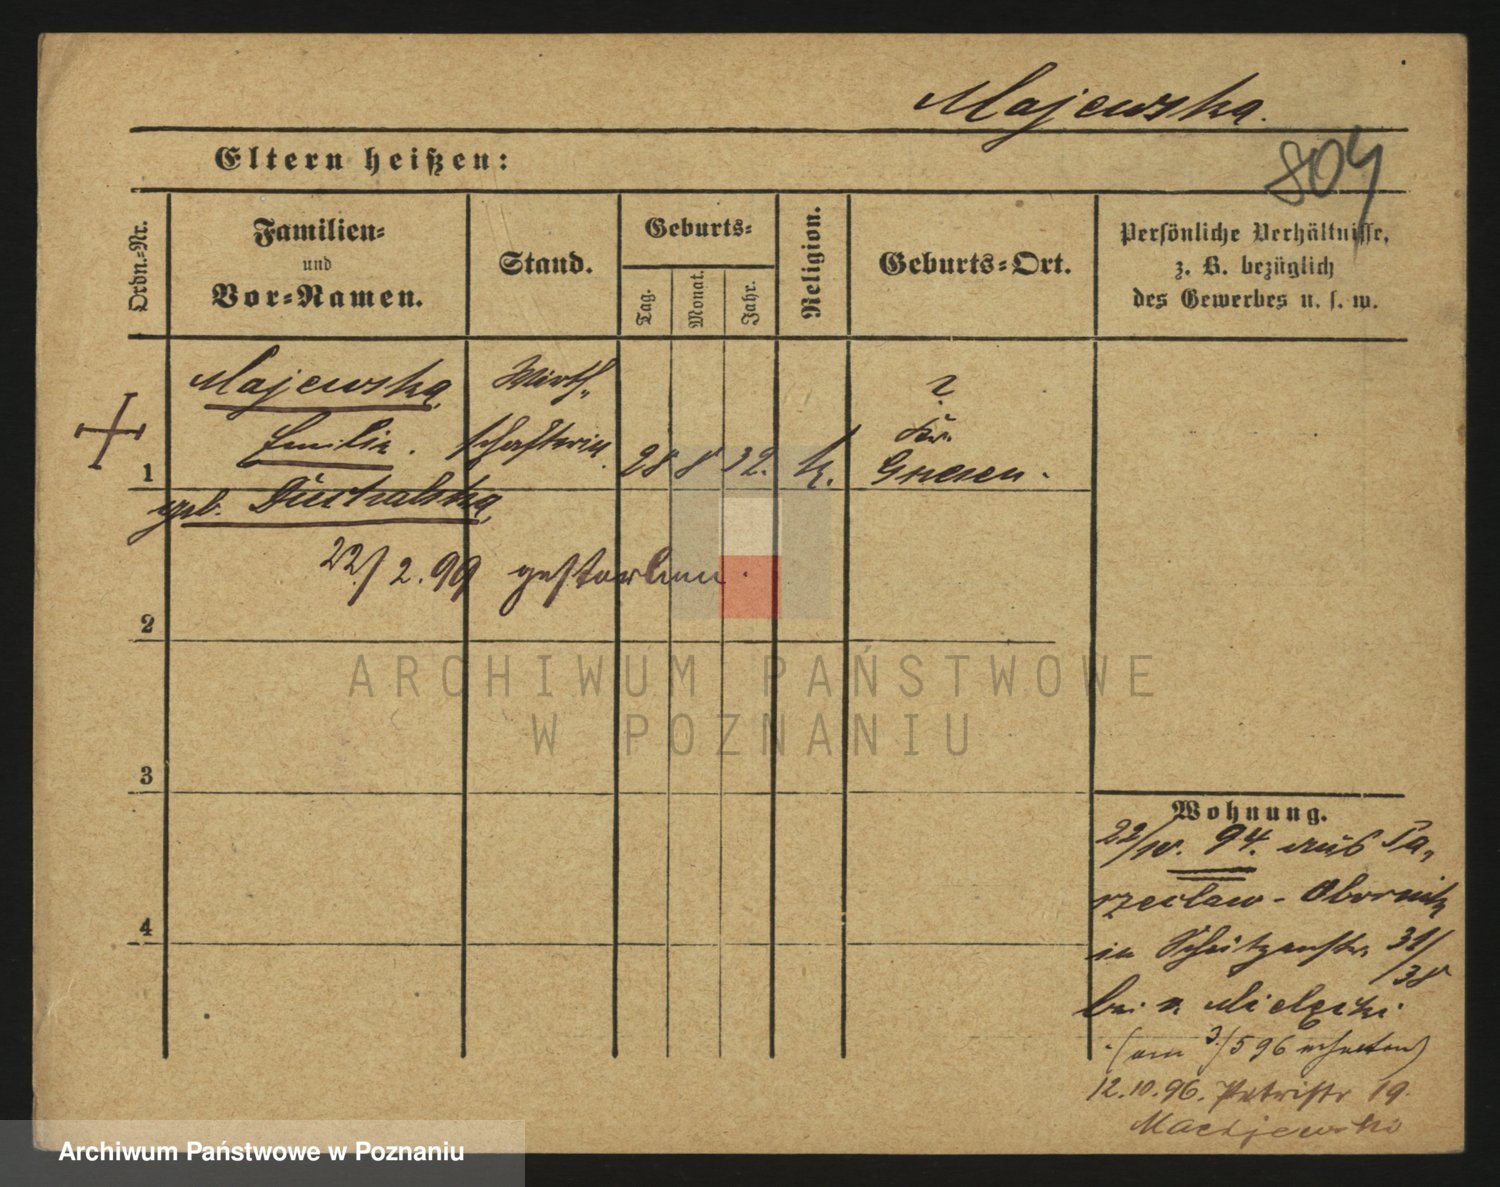 Majewska.
804
Eltern heißen:
Ordn.-Nr.
Familien-
und
Vor-Namen.
Stand.
Geburts-
Tag.
Monat.
Jahr.
Religion.
Geburts-Ort.
Persönliche Verhältnisse,
z. B. bezüglich
des Gewerbes u. s. w.
Majewska,
Emilie.
geb.
Wirth-
schafterin.
1
28 8 32. k.
?
Kr.
Gnesen.
22/2.99 gestorben.
2
3
4
Wohnung.
22/10. 94. aus Pa-
rzeclaw - Obornik
in Schützenstr. 31/
bei v. Mielęcki
(am 3/5 96 erhalten)
12.10.96. Petristr 19.
Maciejewski
ARCHIWUM PAŃSTWOWE
W POZNANIU
Archiwum Państwowe w Poznaniu